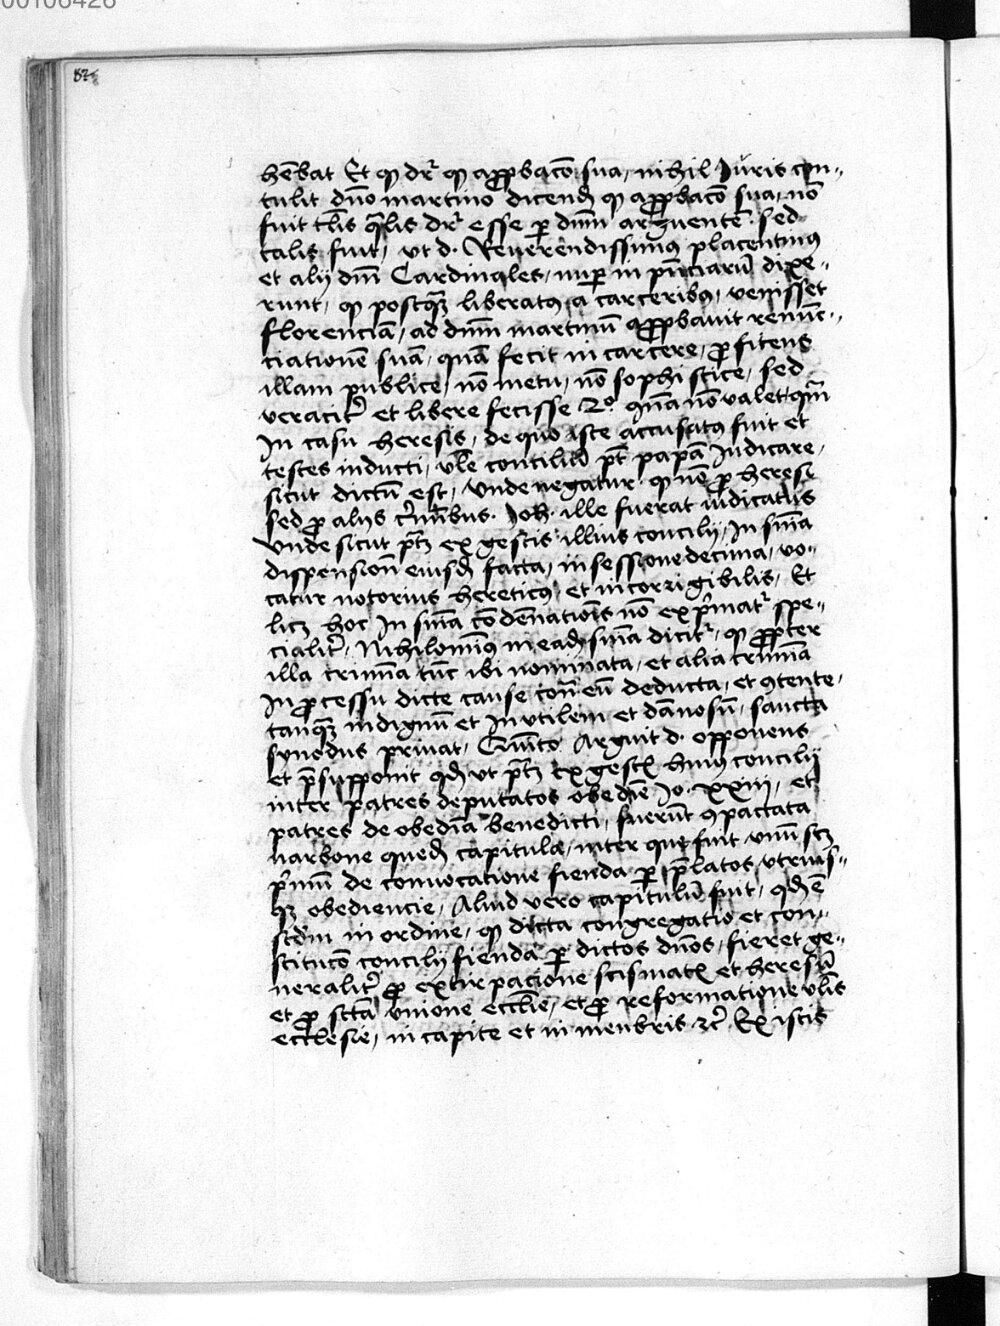 00106426
82
hēbat Et qꝫ dr̄ qꝫ approbacō sua, nihil Juris con-
tulit dn̄o martino dicendū qꝫ approbacō sua, nō
fuit tl̄is q̄lis dr̄ esse per dn̄m arguentē. sed
talis fuit, vt d. Reuerendissimus placentinus
et alij dn̄i Cardinales, nuper in pn̄ciarū dixe-
runt, qꝫ postqꝫ liberatus a carceribus, venisset
florenciam, ad dn̄m martinū approbauit renun-
ciationē suā, quā fecit in carcere, profitens
illam publice, nō metu, nō sophistice, sed
veraciter et libere fecisse 2º. qn̄a nō valet, quī
In casu heresis, de quo iste accusatus fuit et
testes inducti, vl̄e conciliū pt̄ papā Judicare,
sicut dictū est, Vnde negatur qꝫ nō pro herese
sed pro alijs crīnibus. Joh. ille fuerat iudicatus
Vnde sicut ptꝫ ex gestis illius concilij, In sn̄ia
dispensiōn eiusdē facta, in sessione decima, vo-
catur notorius hereticus, et incorrigibilis, Et
licꝫ hoc In sn̄ia condēnationis nō exprimatr̄ spe-
cialiter, Nihilominus in eadē sn̄ia dicitr̄, qꝫ propter
illa crimīa tūc ibi nominata, et alia crimīa
In processu dicte cause contª eū deducta, et ꝯtenta,
tanqꝫ indignū et Inutilem et dānosū, sancta
synodus priuat, Quīto Arguit d. opponens
et presupponit qd̄ vt ptꝫ ex gestꝭ huius concilij
inter patres deputatos obediē Jo. xxiij, et
patres de obediā benedicti, fuerūt ꝯpactata
narbone quedā capitula, inter que fuit vnū scꝫ
pr̄mū de conuocatione fienda per prelatos, vtrius-
qꝫ obediencie, Aliud vero capitulū fuit, qd̄ ē
scdm in ordine, qꝫ dicta congregatio et con-
stitucō concilij fienda per dictos dn̄os, fieret ge-
neraliter pro extirpacione scismatꝭ et heresū
et pro sctā vnione eccl̄ie, et pro reformatione vl̄is
ecclesie, in capite et in menbris ⁊c̄ Ex istis